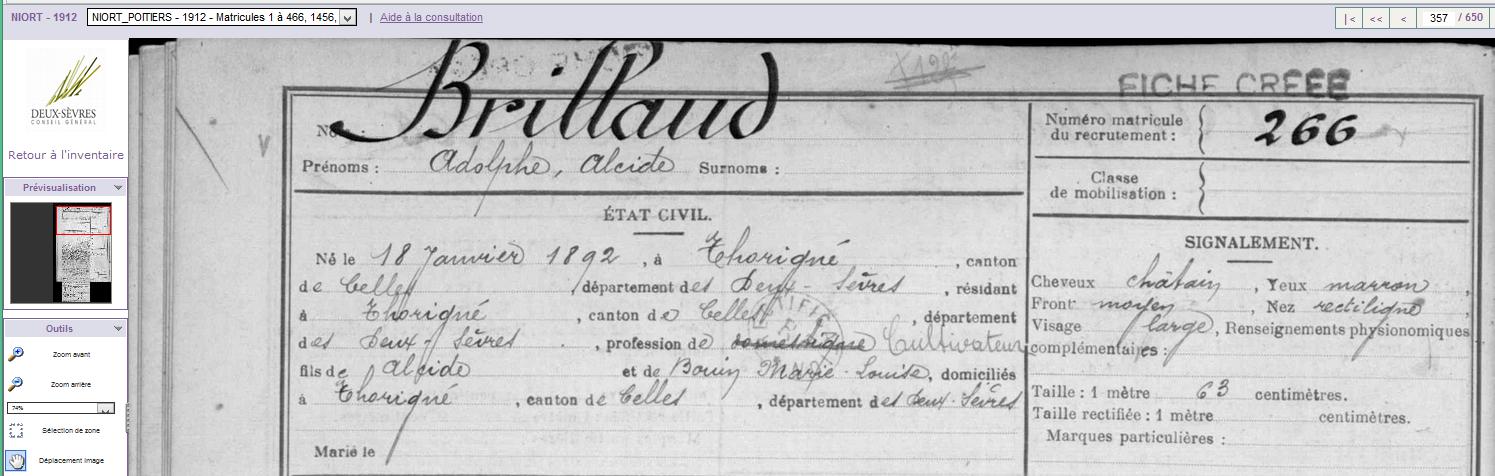 NIORT - 1912 NIORT_POITIERS - 1912 - Matricules 1 à 466, 1456, | Aide à la consultation |< << < 357 / 650
DEUX-SÈVRES
CONSEIL GÉNÉRAL
Retour à l'inventaire
Prévisualisation
Outils
Zoom avant
Zoom arrière
74%
Sélection de zone
Déplacement image
FICHE CRÉÉE
No Brillaud
Prénoms : Adolphe, Alcide Surnoms :
Numéro matricule
du recrutement : 266
Classe
de mobilisation :
ÉTAT CIVIL.
Né le 18 Janvier 1892, à Thorigné, canton
de Celles, département des Deux-Sèvres, résidant
à Thorigné, canton de Celles, département
des Deux-Sèvres, profession de domestique Cultivateur
fils de Alcide et de Bouin Marie-Louise, domiciliés
à Thorigné, canton de Celles, département des Deux-Sèvres
Marié le
SIGNALEMENT.
Cheveux châtain, Yeux marron,
Front moyen, Nez rectiligne,
Visage large, Renseignements physionomiques
complémentaires :
Taille : 1 mètre 63 centimètres.
Taille rectifiée : 1 mètre centimètres.
Marques particulières :